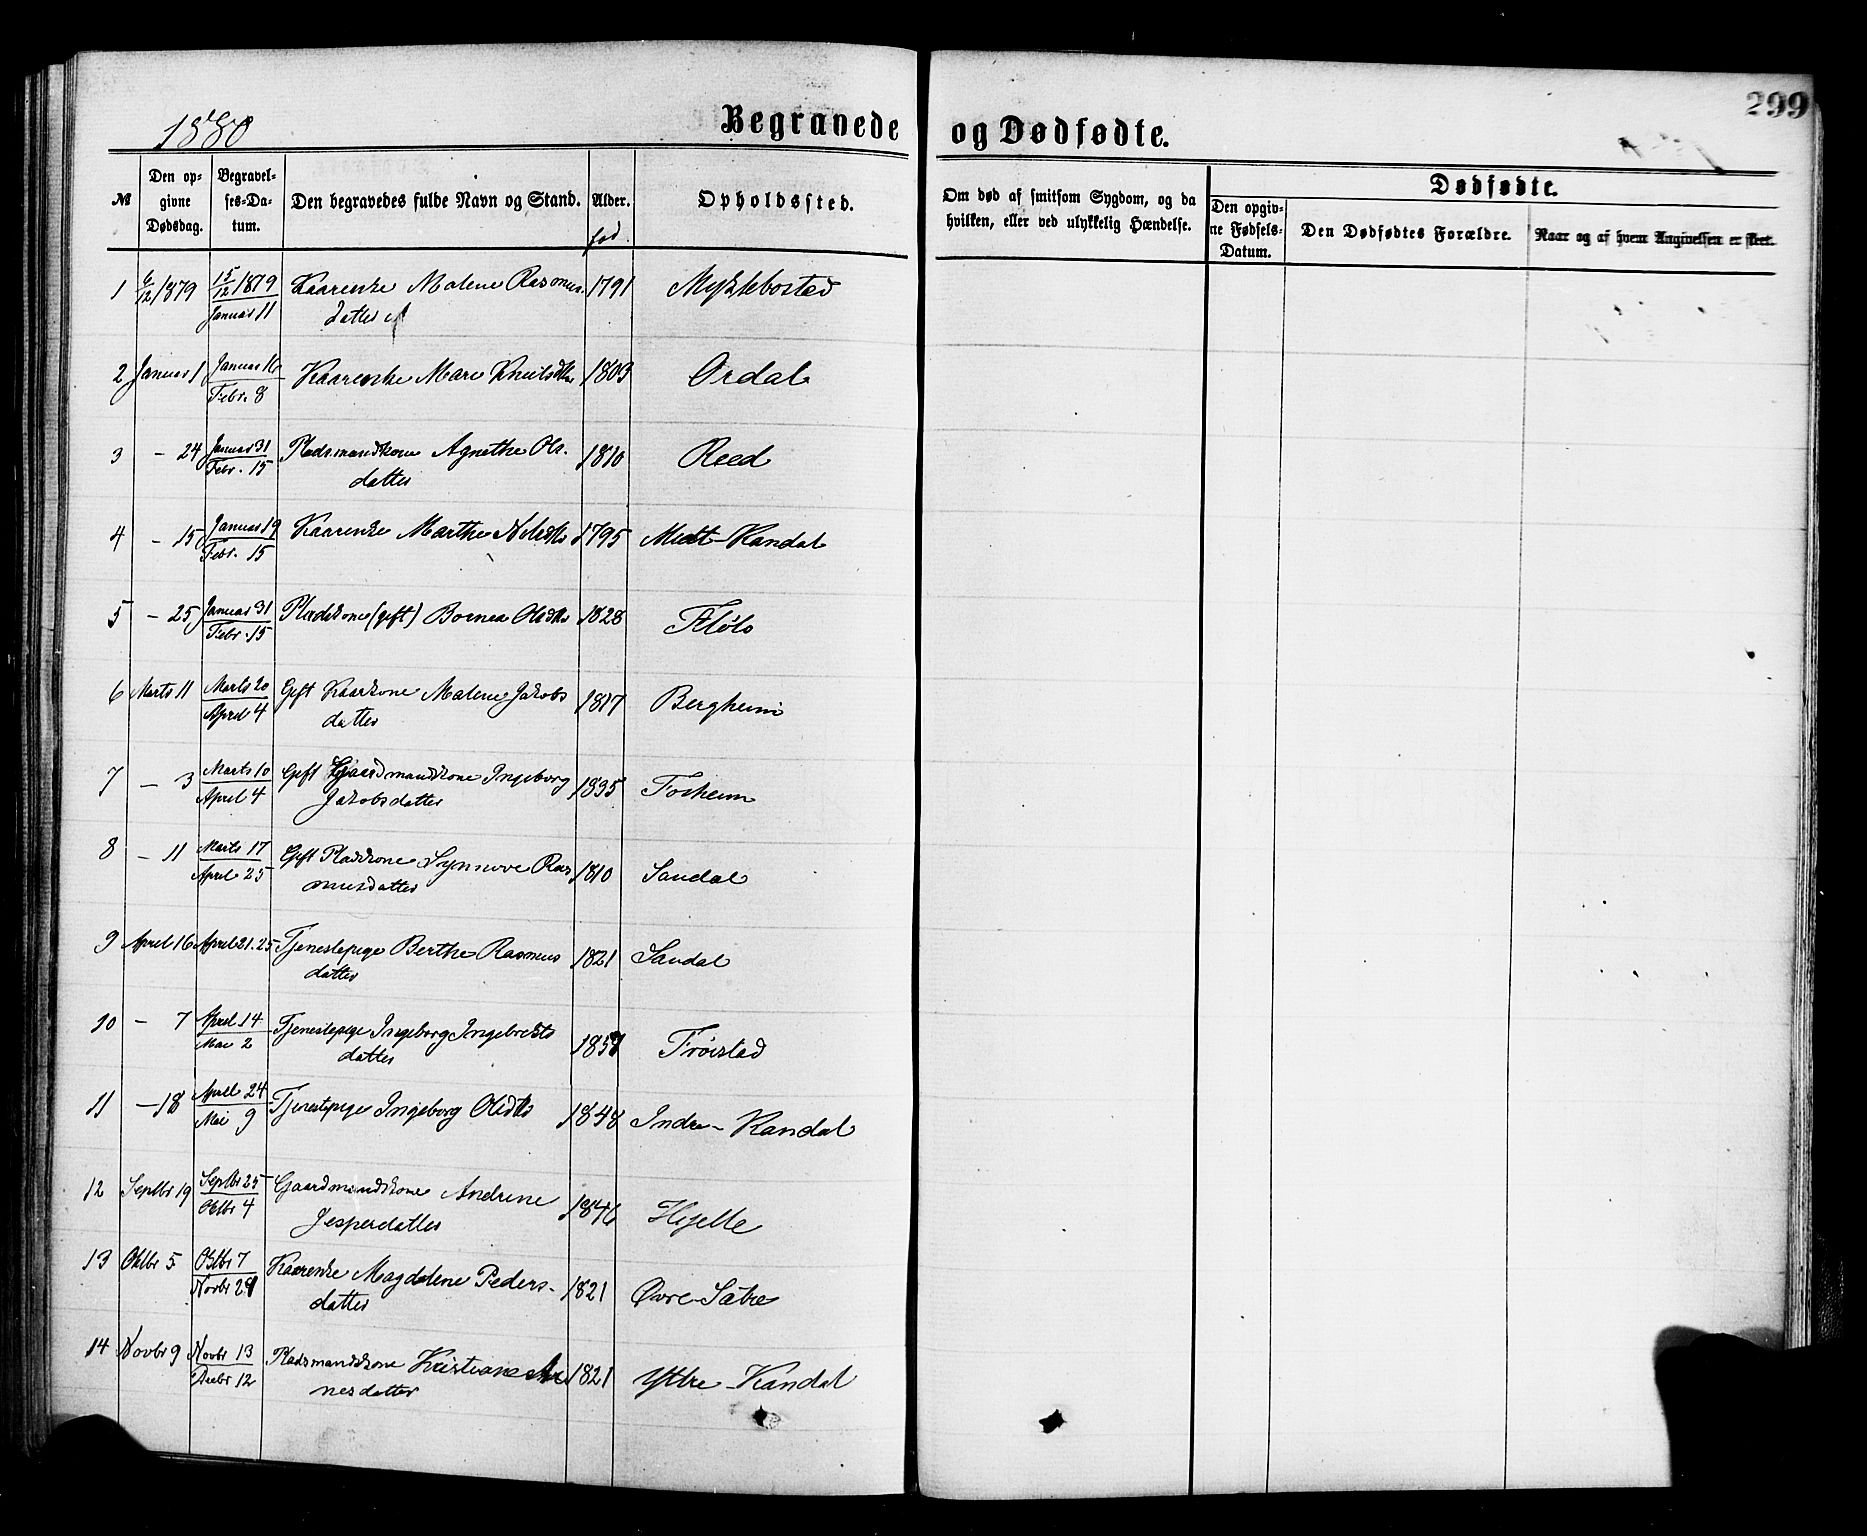 299
1880
Begravede og Dødfødte.
№ Den opgivne Dødsdag. Begravelses-Datum. Den begravedes fulde Navn og Stand. Alder. Opholdssted. Om død af smitsom Sygdom, og da hvilken, eller ved ulykkelig Hændelse. Dødfødte.
Den opgivne Fødsels-Datum. Den Dødfødtes Forældre. Naar og af hvem Angivelsen er skeet.
fød.
1 6/12 1879 15/12 1879 Kaarenke Malene Rasmus- 1791 Myklebostad
Januar 11 datter
2 Januar 1 Januar 16 Kaarenke Mari Knutsdtr 1803 Ordal
Febr. 8
3 – 24 Januar 31 Pladsmandskone Agnethe Ols- 1810 Reed
Febr. 15 datter
4 – 15 Januar 19 Kaarenke Marthe Nilsdtr 1795 Midt-Kandal
Febr. 15
5 – 25 Januar 31 Pladskone (gift) Bornea Olsdtr 1828 Flølo
Febr. 15
6 Marts 11 Marts 20 Gift Kaarkone Malene Jakobs 1817 Bergheim
April 4 datter
7 – 3 Marts 10 Gift Gaardmandskone Ingeborg 1835 Forheim
April 4 Jakobsdatter
8 – 11 Marts 17 Gift Pladskone Synnove Ras 1810 Sandal
April 25 musdatter
9 April 16 April 21. 25 Tjenestepige Berthe Rasmus 1821 Sandal
datter
10 – 7 April 14 Tjenestepige Ingeborg Ingebrekts 1857 Frøistad
Mai 2 datter
11 – 18 April 24 Tjenestepige Ingeborg Olsdtr 1848 Indre-Kandal
Mai 9
12 Septbr 19 Septbr 25 Gaardmandskone Andrine 1846 Hjelle
Oktbr 4 Jesperdatter
13 Oktbr 5 Oktbr 7 Kaarenke Magdalene Peders- 1821 Øvre-Sætre
Novbr 21 datter
14 Novbr 9 Novbr 13 Pladsmandskone Kristiane Ar 1821 Yttre-Kandal
Decbr 12 nesdatter